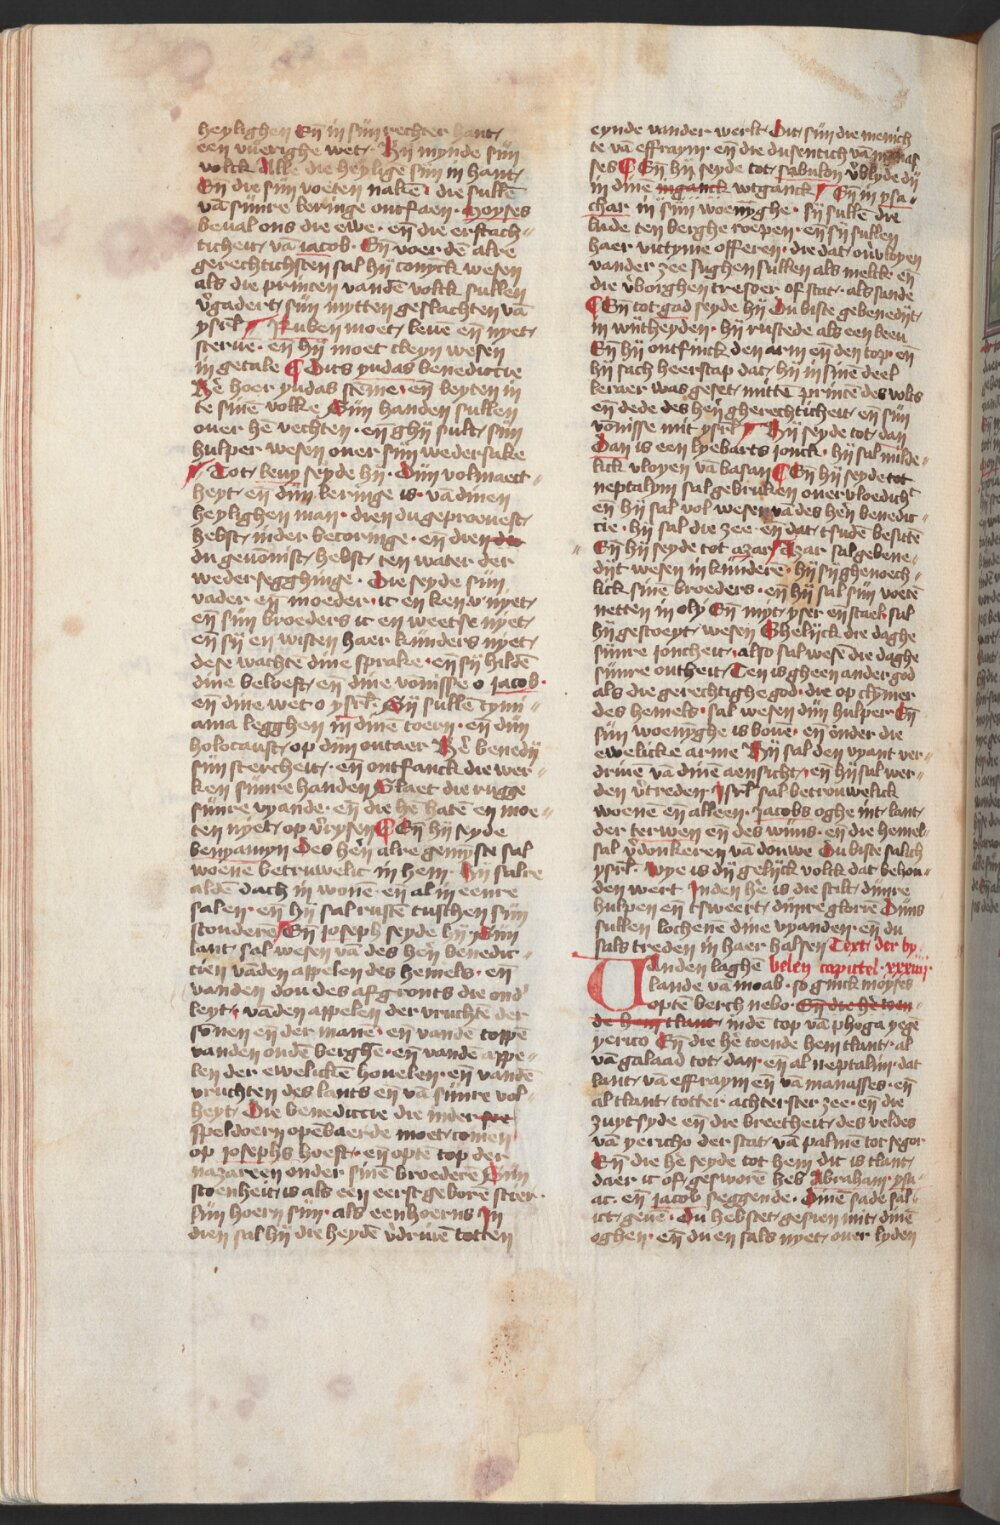 heylighen Eñ in sijn rechter hant
een vuerighe wet · Hij mynde sijn
volck Alle die heylige sijn in hant
Eñ die sijn voeten nakē die sullē
vā sijnre leringe ontfaen · Moyses
beual ons die ewe · eñ die erffach-
ticheit vā iacob · Eñ voer dē alre
gerechtichsten sal hij conyck wesen
als die princen vandē volck sullen
v̓gadert sijn mytten geslachten vā
ysrl̄ Ruben moet leue eñ nyet
sterue · eñ hij moet cleyn wesen
in getale Dits yudas benedictie
He hoer yudas stēme eñ beyten in
te sinē volke Sijn handen sullen
ouer hē vechten · eñ ghij sult sijn
hulper wesen ouer sijn wedersake
Tot leuy seyde hij · Dijn volmaect-
heyt eñ dijn leringe is · vā dinen
heylighen man · dien du geproeuest
hebst inder becoringe · eñ dien die
du geuōnist hebst ten water der
wedersegghinge · Die seyde sijn
vader eñ moeder · ic en ken v nyet
eñ sijn broeders ic en weetse nyet
eñ sij en wisten haer kijnders nyet
dese wachtē dine sprake · eñ sij hildē
dine beloeft eñ dine vonisse o iacob ·
en dine wet · o ysrl̄ · Sij sullē tymi-
ama legghen in dinē toern · eñ dijn
holocaust op dijn outaer He benedij
sijn stercheit · eñ ontfanck die wer-
ken sijnre handen Slaet die rugge
sijnre vyande · eñ die hē hatē en moe-
ten nyet op v̓rysen Eñ hij seyde
benyamyn Des heñ alre gemyste sal
woenē betruwelic in hem · Hij salre
aldē dach in wonē · eñ al in eenre
salen · eñ hij sal rustē tusschen sijn
scouderē Eñ Joseph seyde hij Dijn
lant sal wesen vā des heñ benedic-
tien vā den appelen des hemels · eñ
vanden dou des afgronts die ond̓
leyt · vā den appelen der vruchtē der
sōnen eñ der mane · en vandē toppē
vanden oudē berghē · eñ vandē appe-
len der ewelickē houelen · eñ vandē
vruchten des lants eñ vā sijnre vol-
heyt Die benedictie die inder
speldoern opēbaerde moet comen
op iosephs hoeft · eñ optē top der
nazareen onder sinē broederē Sijn
scoenheit is als een eerstgeborē stier ·
sijn hoern sijn · als eenhoerns In
dien sal hij die heydē v̓driuē totten
eynde vander werlt · Dit sijn die menich
te vā effraym · eñ die dusentich vā manas
ses Eñ hij seyde tot sabulon v̓blyde dij
in dinē inganck wtganck Eñ in ysa-
char in sijn woenijghe · sij sullē die
lude ten berghe roepen · eñ sij sullen
haer victyme offeren · die dat ouloyen
vander zee sughen sullen als melck · eñ
die v̓borghen tresoer of scat · als sande
Eñ tot gad seyde hij Du biste gebenedijt
in wijtheyden · hij rustede als een leeu
Eñ hij ontfinck den arm eñ den top · eñ
hij sach heerscap dat hij in sinē deel
leraer was geset mittē princē des volcs
eñ dede des heñ gherechticheit eñ sijn
vōnisse mit ysrl̄ Hij seyde tot dan
Dan is een lyebarts jonck · hij sal milde-
lick vloyen vā basan Eñ hij seyde tot
neptalym sal gebruken ouervloedich̄t
eñ hij sal vol wesen vā des heñ benedic-
tie · hij sal die zee · eñ dat tsudē besittē
Eñ hij seyde tot azar Azar sal gebene-
dijt wesen in kijnderē · hij sij ghenoech-
lick sinē broeders · eñ hij sal sijn voetē
netten in oly Eñ myt yser eñ stael sal
hij gestoept wesen Ghelijck die daghe
sijnre joncheit · also sal wesē die daghe
sijnre outheit Ten is gheen ander god
als die gerechtighe god · die op clymer
des hemels · sal wesen dijn hulper Eñ
sijn woenyghe is bouē · eñ onder die
ewelicke arme Hij sal den vyant ver-
driuē vā dinē aensicht · eñ hij sal wer-
den v̓treden · Jsrl̄ sal betrouwelick
woenē eñ alleen · Jacobs oghe int lant
der terwen eñ des wijns · eñ die hemel
sal v̓donkeren vā douwe Du biste salich
ysrl̄ · Wye is dij gelijck volck dat behou-
den wert Inden hē is die scilt dijnre
hulpen eñ tsweert dijnre glorie Dijns
sullen lochenē dine vyanden · eñ du
sals treden in haer halsen Text der by
belen capittel · xxxiiij
Uanden laghē
lande vā moab · so ginck moyses
optē berch nebo · Eñ die hē toen-
de hem tlant indē top vā phoga yegē
yerico Eñ die hē toende hem tlant · al
vā galaad tot dan · eñ al neptalim · dat
lant vā effraym eñ vā manasses · eñ
al tlant totter achterster zee · eñ die
zuytsyde eñ die breetheit des veldes
vā yericho der stat vā palmē tot segor
Eñ die hē seyde tot hem dit is tlant
daer ic of gesworē heb Abraham ysa-
ac · eñ jacob seggende · Dinē sade sal
ict geuē · Du hebstet gesien mit dinē
oghen · eñ du en sals nyet ouer lyden